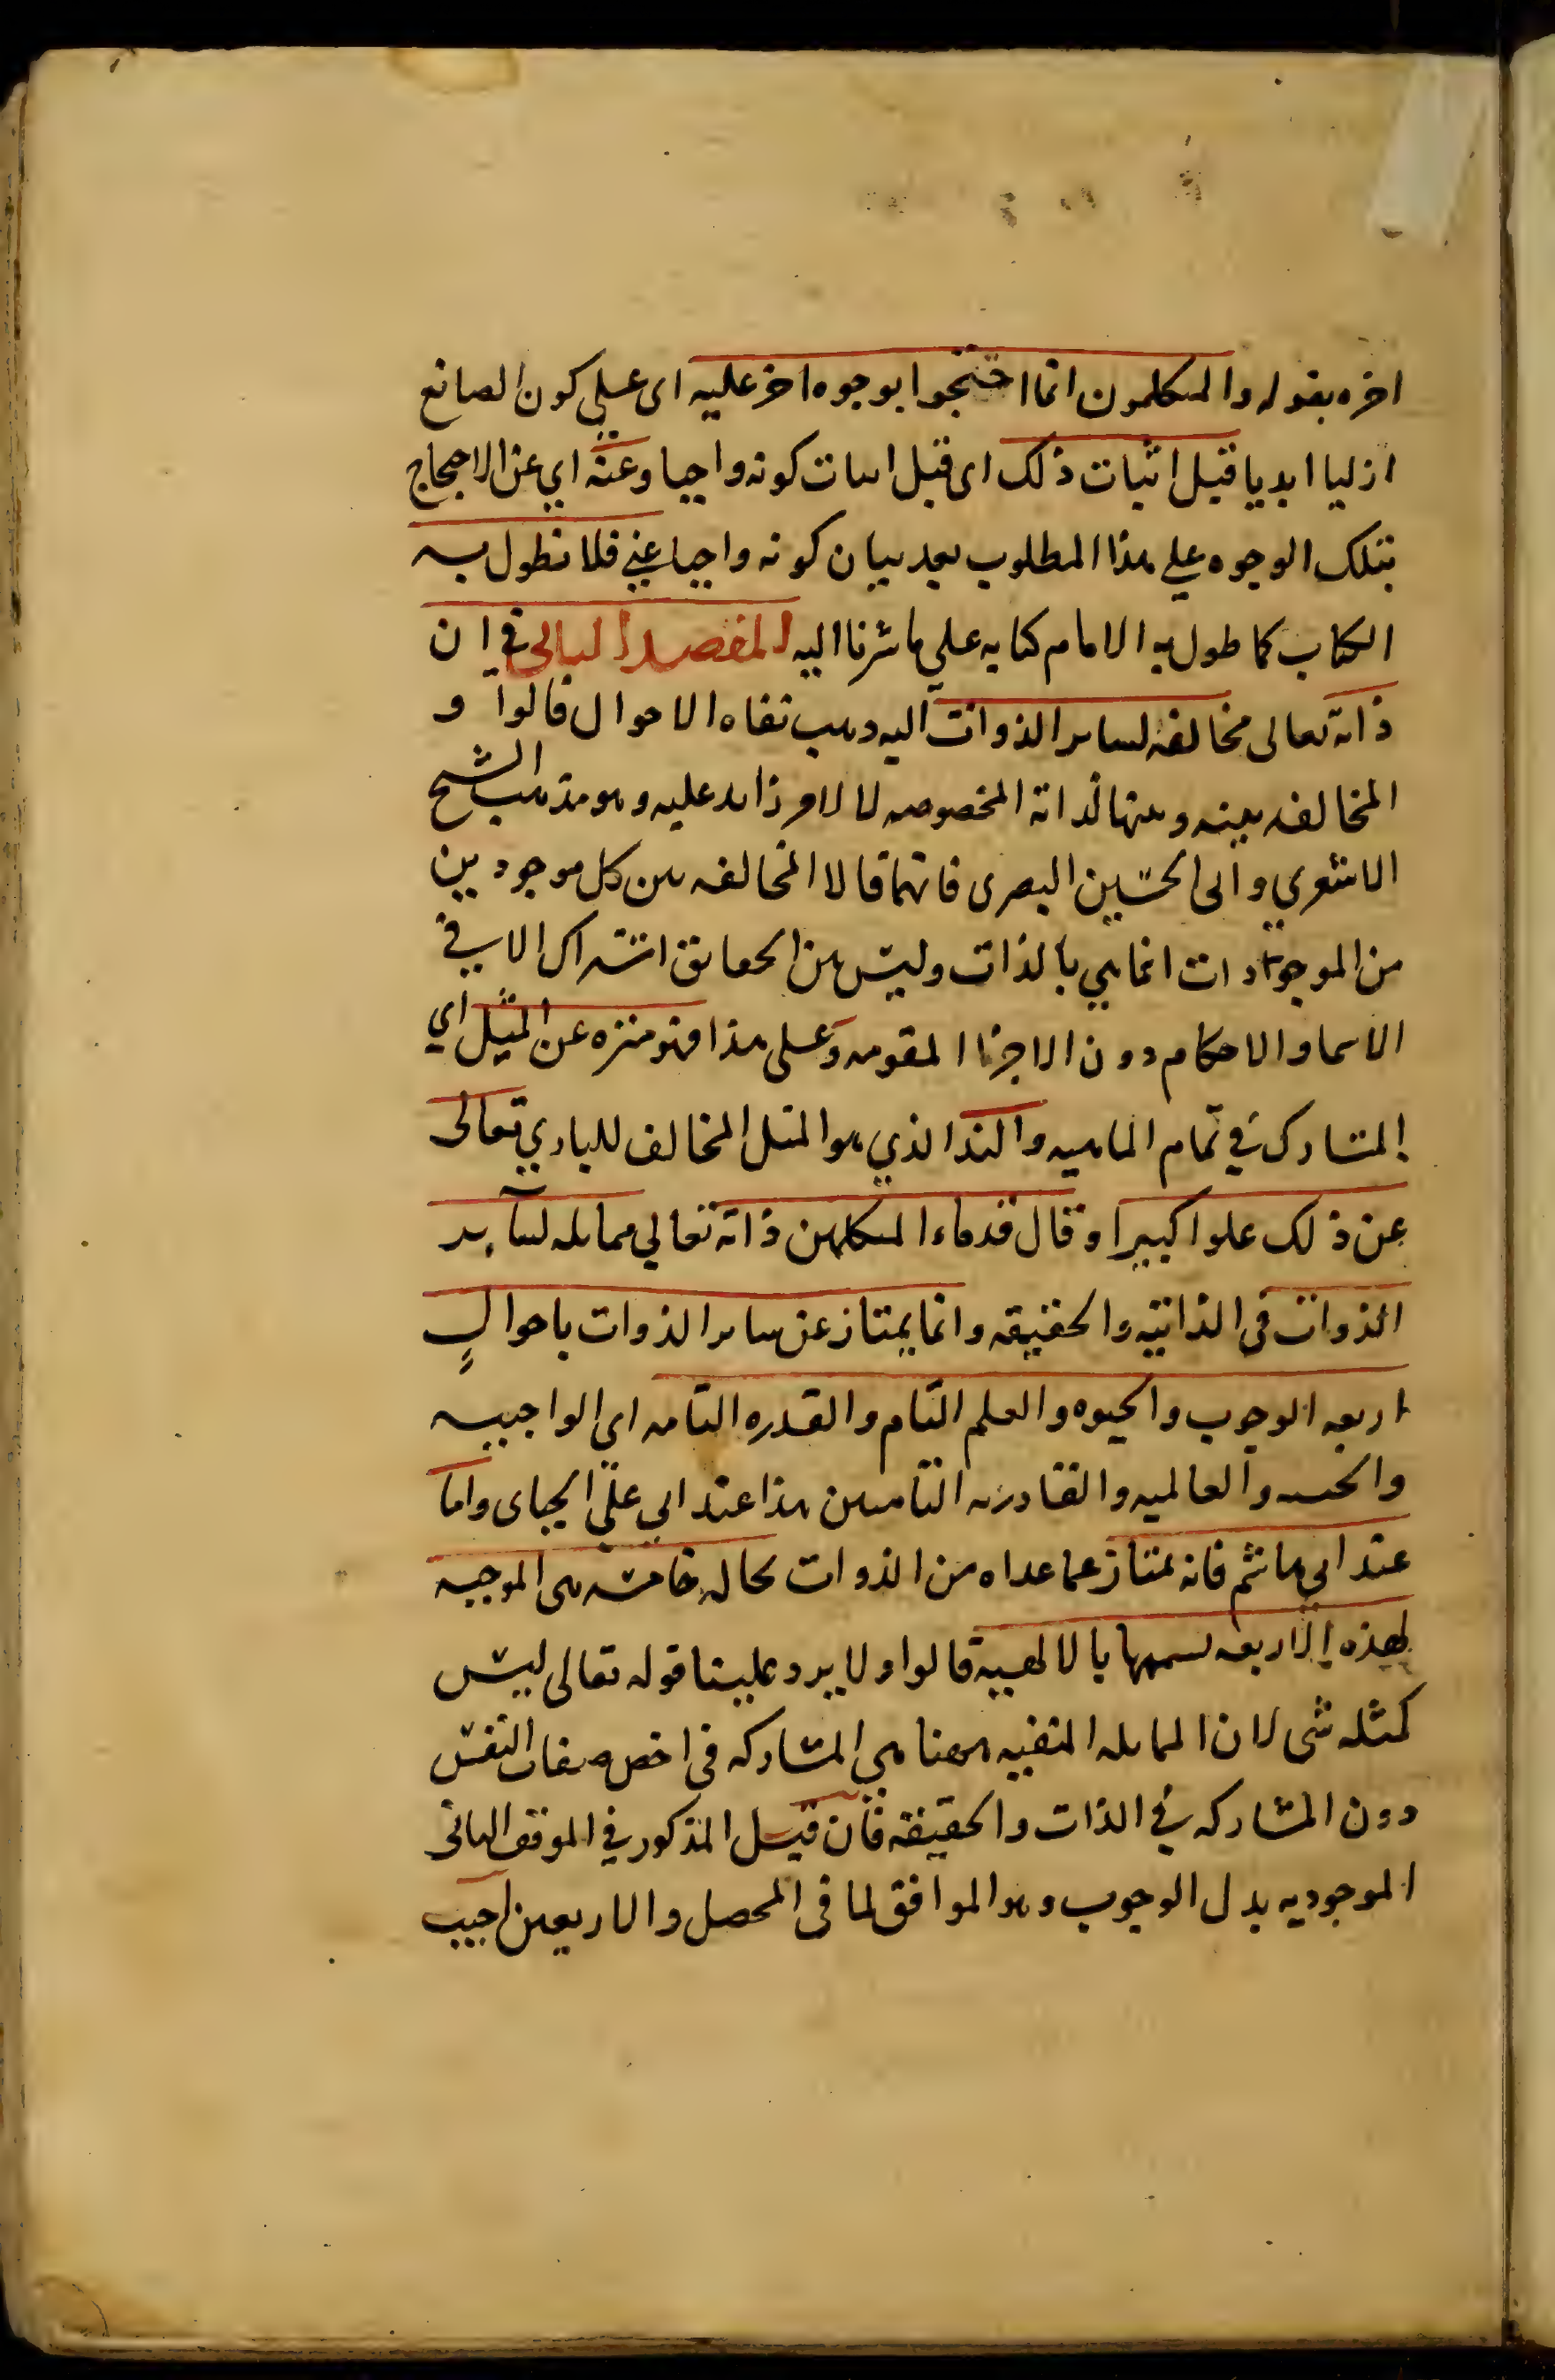 اخره بقوله والمتكلمون انما احتجوا بوجوه اخر عليه اى على كون الصانع
ازليا ابديا قبل اثبات ذلك اى قبل اثبات كونه واجبا وعنه اي عن الاحتجاج
بتلك الوجوه علي هذا المطلوب بعد بيان كونه واجبا غني فلا نطول به
الكتاب كما طول به الامام كتابه علي ما شرنا اليه المقصد الثاني في ان
ذاته تعالى مخالفه لساير الذوات اليه ذهب نفاه الاحوال قالوا و
المخالفه بينه وبينها لذاته المخصوصه لا لامر زايد عليه وهو مذهب الشيخ
الاشعري وابى الحسين البصرى فانهما قالا المخالفه بين كل موجودين
من الموجودات انما هي بالذات وليس بين الحقايق اشتراك الا في
الاسما والاحكام دون الاجزا المقومه وعلى هذا فهو منزه عن المثل اي
المشارك في تمام الماهيه والند الذي هو المثل المخالف للباري تعالى
عن ذلك علوا كبيرا وقال قدماء المتكلمين ذاته تعالي مماثله لساير
الذوات في الذاتيه والحقيقه وانما يمتاز عن ساير الذوات باحوال
اربعه الوجوب والحيوه والعلم التام والقدره التامه اى الواجبيه
والحييه والعالميه والقادريه التامتين هذا عند ابي علي الجباى واما
عند ابي هاشم فانه يمتاز عما عداه من الذوات بحاله خامسه هى الموجبه
لهذه الاربعه نسميها بالالهيه قالوا ولا يرد علينا قوله تعالى ليس
كمثله شى لان المماثله المنفيه ههنا هي المشاركه فى اخص صفات النفس
دون المشاركه في الذات والحقيقه فان قيل المذكور في الموقف الثانى
الموجوديه بدل الوجوب وهو الموافق لما فى المحصل والاربعين اجيب